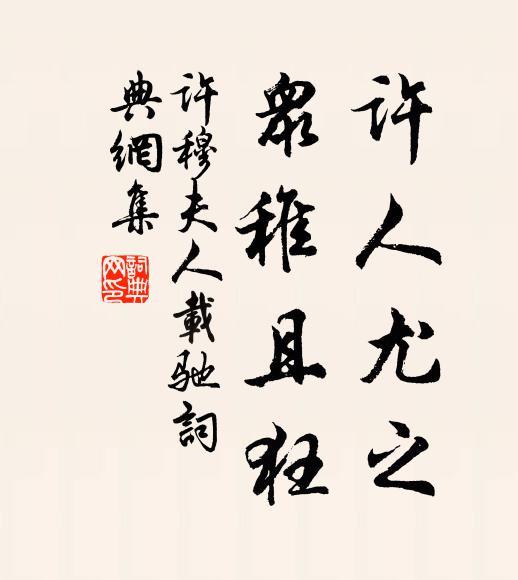 許人尤之
衆稚且狂
許穆夫人載馳詞
典網集
詞典網印